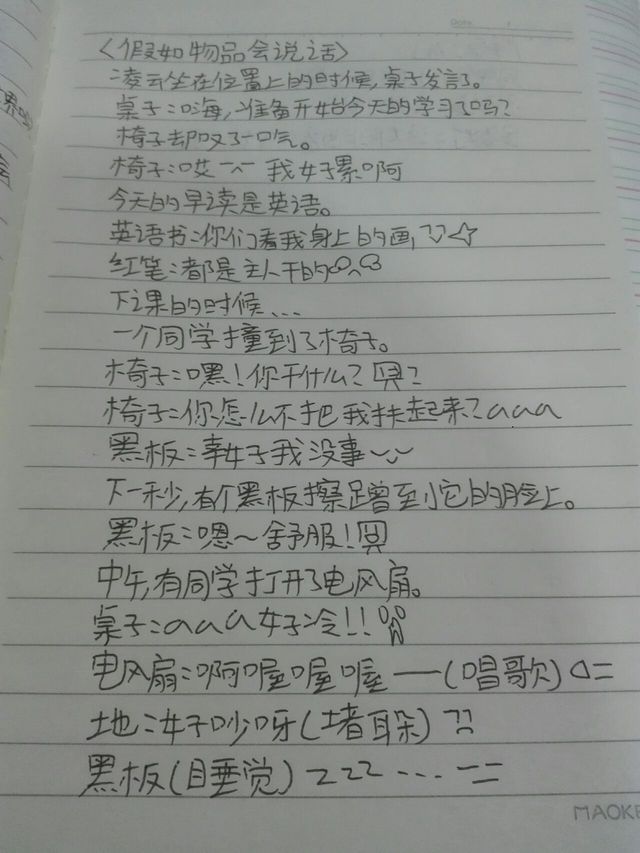 Date
〈假如物品会说话〉
凌云坐在位置上的时候,桌子发言了。
桌子:嗨,准备开始今天的学习了吗?
椅子却叹了一口气。
椅子:哎 我好累啊
今天的早读是英语。
英语书:你们看我身上的画,
红笔:都是主人干的
下课的时候...
一个同学撞到了椅子。
椅子:嘿!你干什么?
椅子:你怎么不把我扶起来?aaa
黑板:幸好我没事
下一秒,有个黑板擦蹭到它的脸上。
黑板:嗯~舒服!
中午,有同学打开了电风扇。
桌子:aaa好冷!!
电风扇:啊喔喔喔——(唱歌)
地:好吵呀(堵耳朵)
黑板(睡觉)zzz...
MAOKE